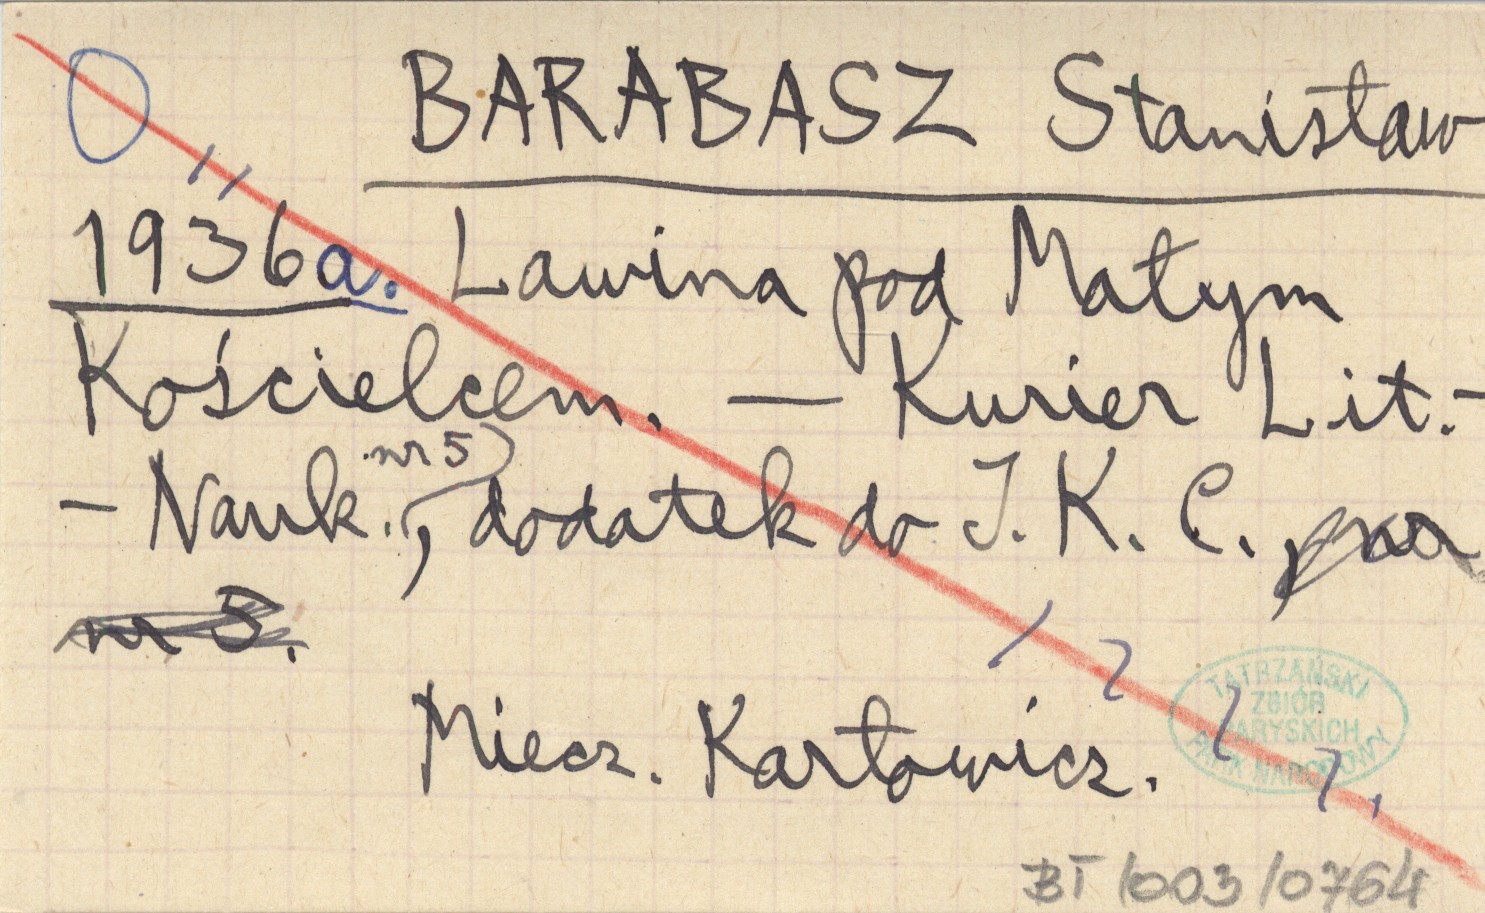 BARABASZ Stanisław
1936a. Lawina pod Małym
Kościelcem. — Kurier Lit.-
- Nauk. nr 5, dodatek do I. K. C.
nr 5.
Miecz. Karłowicz.
TATRZAŃSKI
ZBIÓR
PARYSKICH
PARK NARODOWY
BT/003/0764